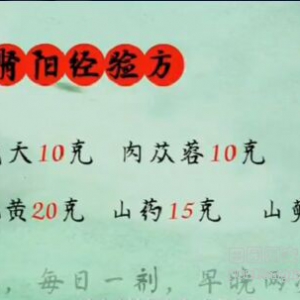 肾阳经验方
天10克 肉苁蓉10克
黄20克 山药15克 山
，每日一剂，早晚两